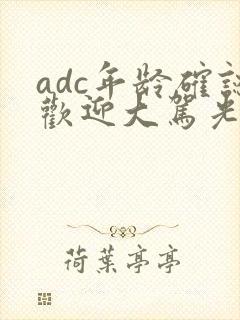 adc年龄確認
歡迎大駕光
荷葉亭亭